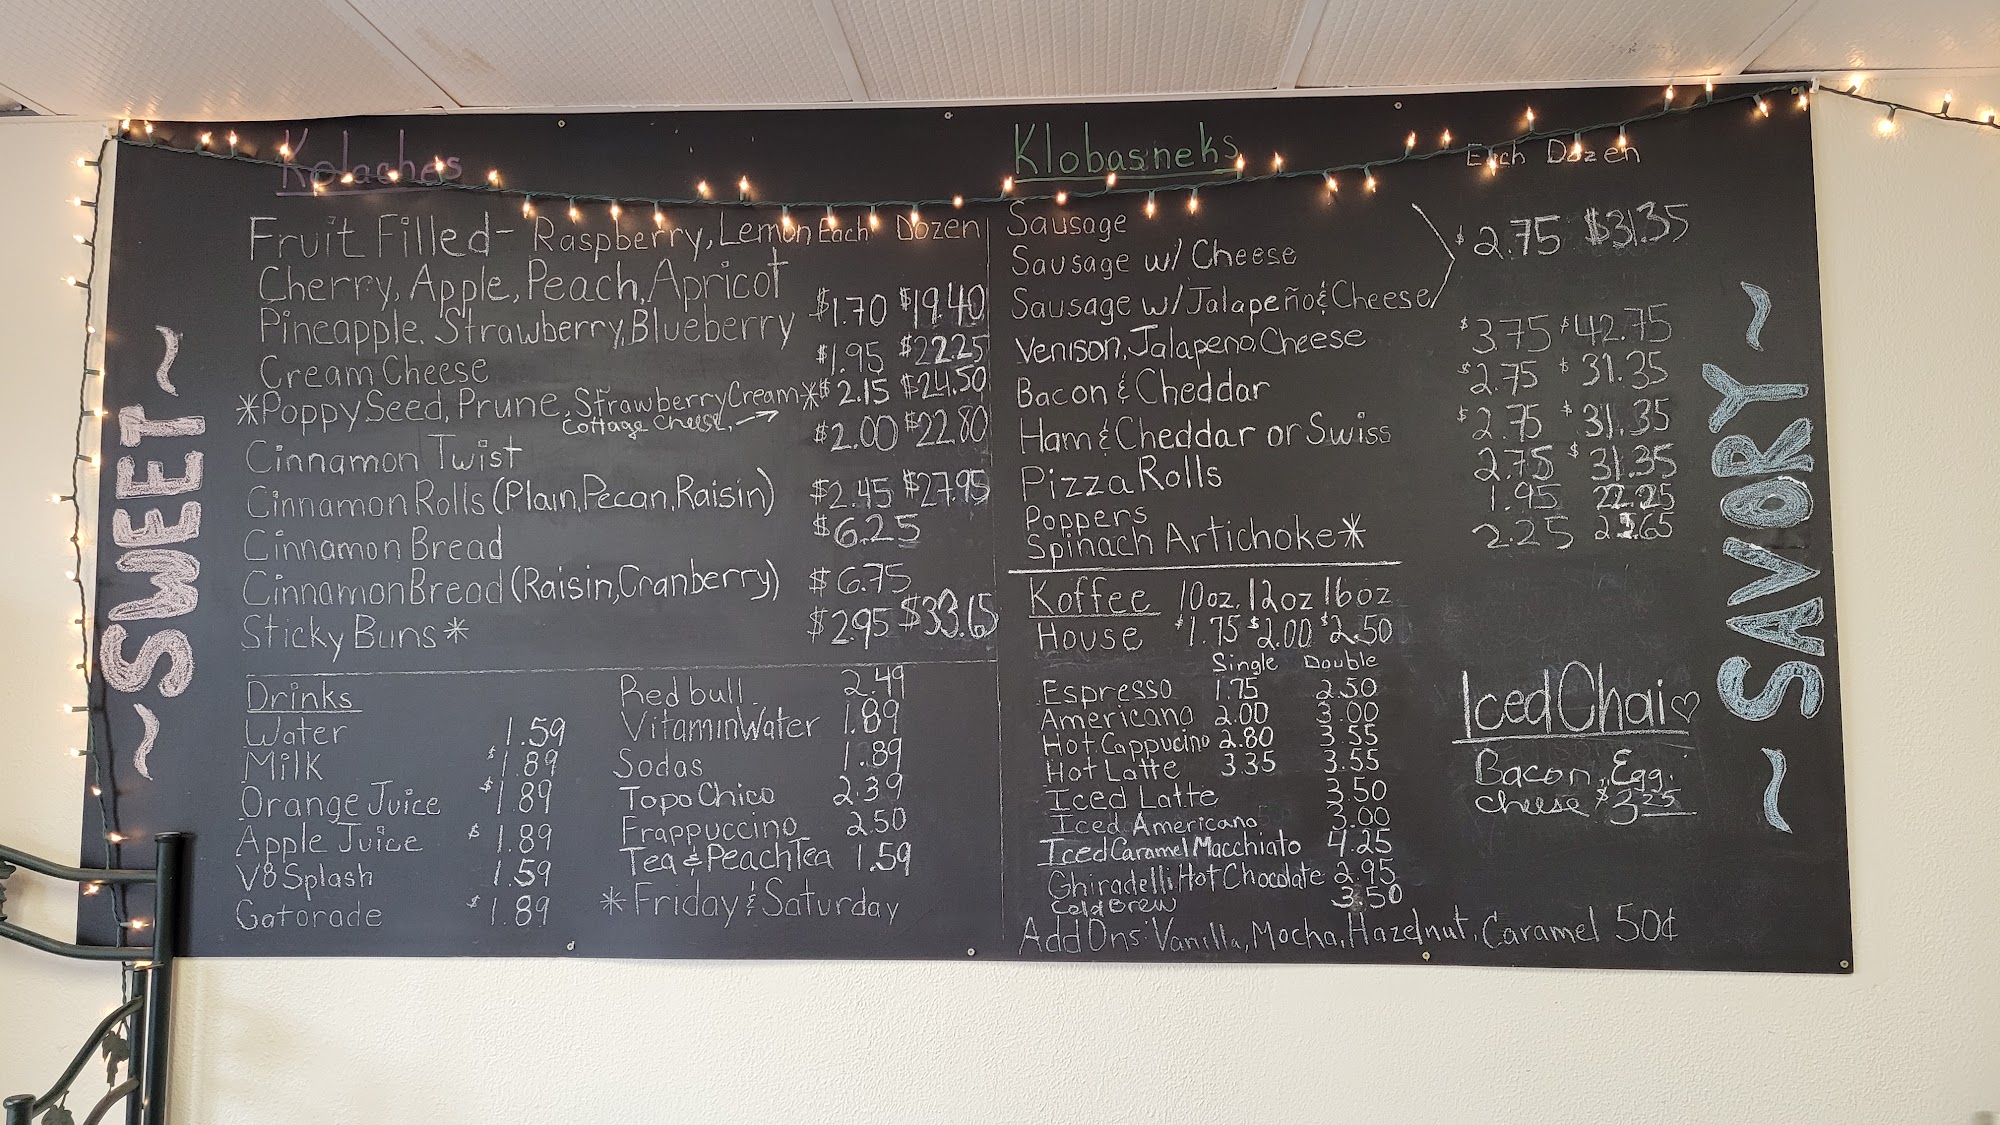 ~SWEET~
Kolaches
Fruit Filled- Raspberry, Lemon Each Dozen
Cherry, Apple, Peach, Apricot
Pineapple, Strawberry, Blueberry $1.70 $19.40
Cream Cheese $1.95 $22.25
*Poppy Seed, Prune, Strawberry Cream* $2.15 $24.50
Cottage Cheese,
Cinnamon Twist $2.00 $22.80
Cinnamon Rolls (Plain, Pecan, Raisin) $2.45 $27.95
Cinnamon Bread $6.25
Cinnamon Bread (Raisin, Cranberry) $6.75
Sticky Buns* $2.95 $33.65
Drinks
Water 1.59
Milk $1.89
Orange Juice $1.89
Apple Juice $1.89
V8 Splash 1.59
Gatorade $1.89
Redbull 2.49
VitaminWater 1.89
Sodas 1.89
Topo Chico 2.39
Frappuccino 2.50
Tea & Peach Tea 1.59
*Friday & Saturday
Klobasneks Each Dozen
Sausage
Sausage w/ Cheese $2.75 $31.35
Sausage w/ Jalapeño & Cheese
Venison, Jalapeno, Cheese $3.75 $42.75
Bacon & Cheddar $2.75 $31.35
Ham & Cheddar or Swiss $2.75 $31.35
Pizza Rolls 2.75 $31.35
Poppers 1.95 22.25
Spinach Artichoke* 2.25
Koffee 10oz. 12oz 16oz
House $1.75 $2.00 $2.50
Single Double
Espresso 1.75 2.50
Americano 2.00 3.00
Hot Cappucino 2.80 3.55
Hot Latte 3.35 3.55
Iced Latte 3.50
Iced Americano 3.00
Iced Caramel Macchiato 4.25
Ghiradelli Hot Chocolate 2.95
Cold Brew 3.50
Add Ons: Vanilla, Mocha, Hazelnut, Caramel 50¢
Iced Chai♡
Bacon, Egg,
Cheese $3.25
~SAVORY~